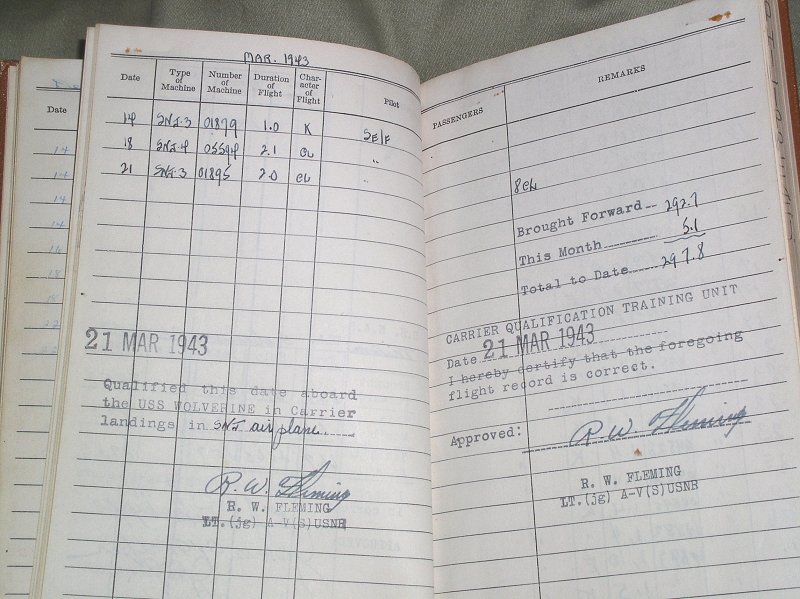 MAR. 1943
Date Type of Machine Number of Machine Duration of Flight Char-acter of Flight Pilot
14 SNJ-3 01879 1.0 K SE/F
18 SNJ-4 05594 2.1 CL "
21 SNJ-3 01895 2.0 CL "
21 MAR 1943
Qualified this date aboard
the USS WOLVERINE in Carrier
landings in SNJ airplane.
R. W. Fleming
R. W. FLEMING
LT.(jg) A-V(S)USNR
PASSENGERS REMARKS
8CL
Brought Forward 292.7
This Month 5.1
Total to Date 297.8
CARRIER QUALIFICATION TRAINING UNIT
Date 21 MAR 1943
I hereby certify that the foregoing
flight record is correct.
Approved: R. W. Fleming
R. W. FLEMING
LT.(jg) A-V(S)USNR
Date
14
14
14
14
16
18
18
22
22